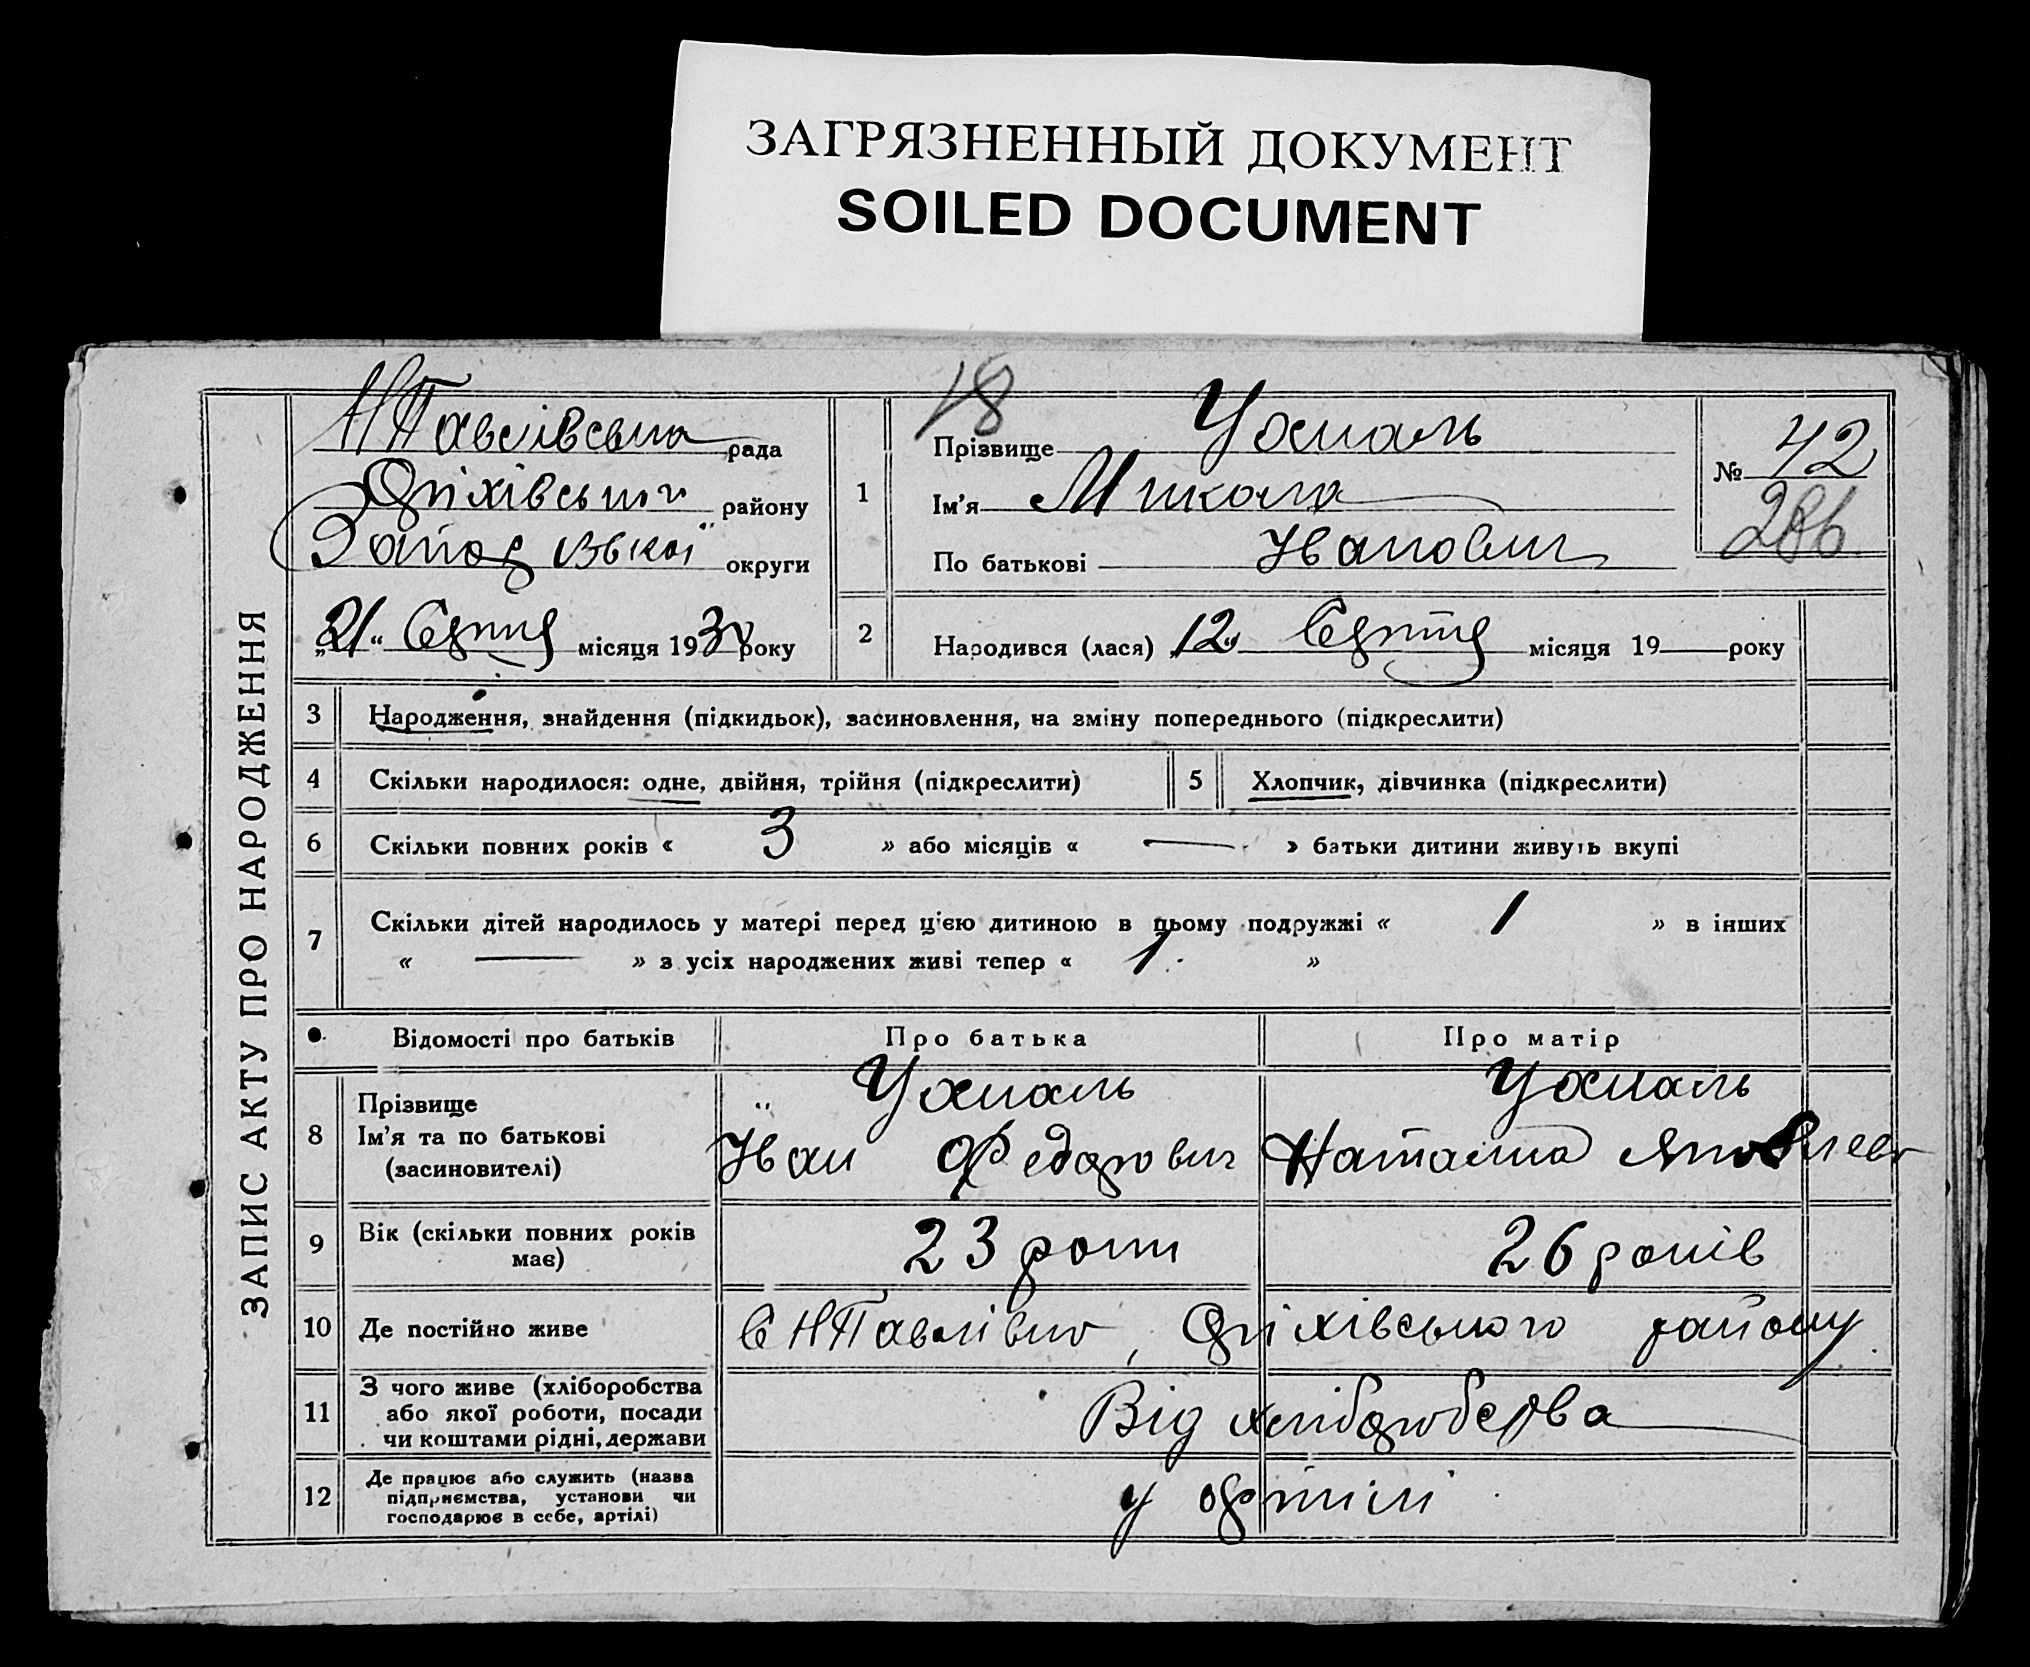 ЗАГРЯЗНЕННЫЙ ДОКУМЕНТ
SOILED DOCUMENT
ЗАПИС АКТУ ПРО НАРОДЖЕННЯ
НПавлівська рада
Оріхівського району
Запорізької округи
„21“ Серпня місяця 1930 року
18
1
Прізвище
Ім’я Микола
По батькові Іванович
№ 42
286
2 Народився (лася) „12“ Серпня місяця 19 року
3 Народження, знайдення (підкидьок), засиновлення, на зміну попереднього (підкреслити)
4 Скільки народилося: одне, двійня, трійня (підкреслити)
5 Хлопчик, дівчинка (підкреслити)
6 Скільки повних років « 3 » або місяців « — » батьки дитини живуть вкупі
7 Скільки дітей народилось у матері перед ц'єю дитиною в цьому подружжі « 1 » в інших
« — » з усіх народжених живі тепер « 1. »
Відомості про батьків Про батька Про матір
8 Прізвище
Ім’я та по батькові
(засиновителі)
Іван Федорович
Наталія
9 Вік (скільки повних років
має)
23 роки
26 років
10 Де постійно живе
С НПавлівка, Оріхівського району.
11 З чого живе (хліборобства
або якої роботи, посади
чи коштами рідні, держави
Від хліборобства
12 Де працює або служить (назва
підприємства, установи чи
господарює в себе, артілі)
у артілі